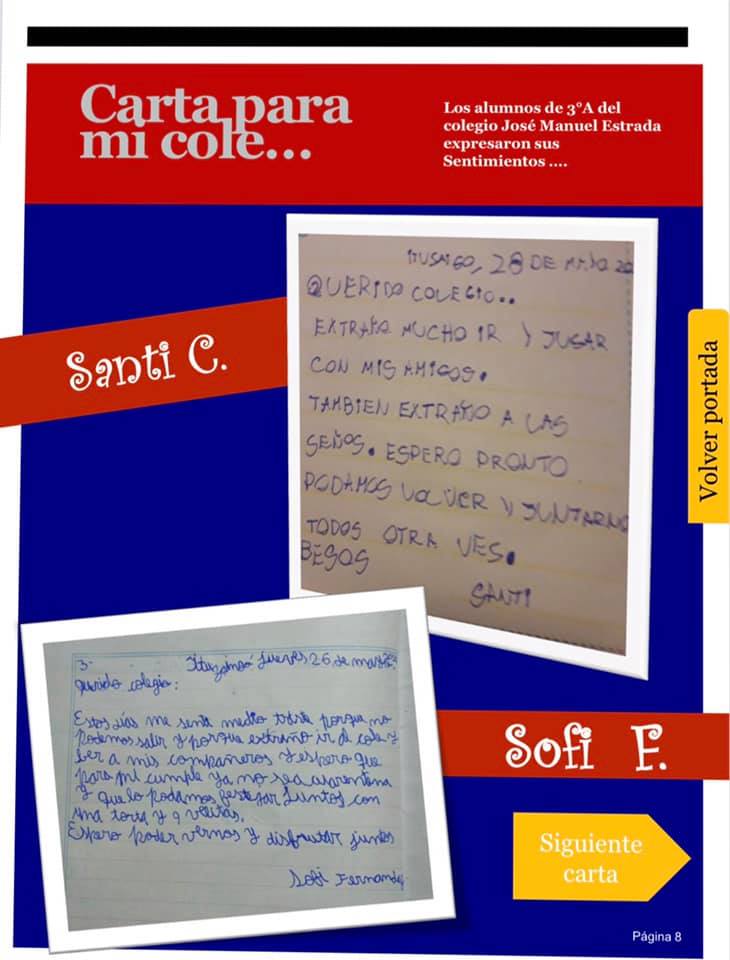 Carta para
mi cole...
Los alumnos de 3°A del
colegio José Manuel Estrada
expresaron sus
Sentimientos ....
ITUSAIGO, 28 DE MAYO 20
QUERIDO COLEGIO..
EXTRAÑO MUCHO IR Y JUGAR
CON MIS AMIGOS.
TAMBIEN EXTRAÑO A LAS
SEÑOS. ESPERO PRONTO
PODAMOS VOLVER Y JUNTARNO
TODOS OTRA VES.
BESOS
SANTI
Santi C.
Volver portada
3- Jueves 26 de
querido colegio:
Estos días me senti medio triste porque no
podemos salir y porque extraño ir al cole y
ber a mis compañeros y espero que
para mi cumple ya no sea cuarentena
y que lo podamos festejar juntos con
una torta y 9 velitas.
Espero poder vernos y disfrutar juntos
Sofi Fernandez
Sofi F.
Siguiente
carta
Página 8